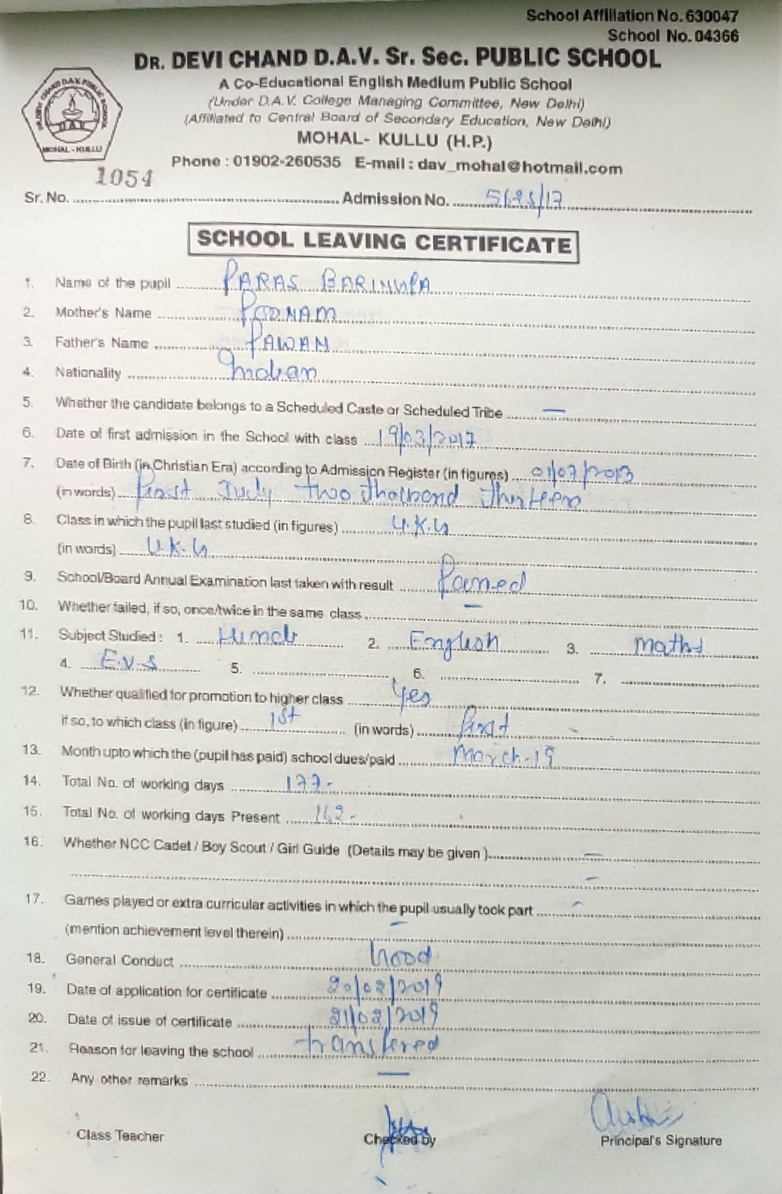 School Affiliation No. 630047
School No. 04366
DR. DEVI CHAND D.A.V. Sr. Sec. PUBLIC SCHOOL
A Co-Educational English Medium Public School
(Under D.A.V. College Managing Committee, New Delhi)
(Affiliated to Central Board of Secondary Education, New Delhi)
MOHAL- KULLU (H.P.)
Phone : 01902-260535 E-mail : dav_mohal@hotmail.com
DR. DEVI CHAND D.A.V. PUBLIC SCHOOL
D A V
MOHAL - KULLU
Sr. No. 1054 Admission No.
SCHOOL LEAVING CERTIFICATE
1. Name of the pupil PARAS
2. Mother's Name POONAM
3. Father's Name PAWAN
4. Nationality Indian
5. Whether the candidate belongs to a Scheduled Caste or Scheduled Tribe —
6. Date of first admission in the School with class 19/03/2017
7. Date of Birth (in Christian Era) according to Admission Register (in figures) 01/07/2013
(in words) First July two thousand thirteen
8. Class in which the pupil last studied (in figures) U.K.G
(in words) U.K.G
9. School/Board Annual Examination last taken with result Passed
10. Whether failed, if so, once/twice in the same class —
11. Subject Studied : 1. Hindi 2. English 3. maths
4. E.V.S 5. 6. 7.
12. Whether qualified for promotion to higher class Yes
if so, to which class (in figure) 1st (in words) First
13. Month upto which the (pupil has paid) school dues/paid March-19
14. Total No. of working days 177-
15. Total No. of working days Present 162-
16. Whether NCC Cadet / Boy Scout / Girl Guide (Details may be given) —
—
17. Games played or extra curricular activities in which the pupil usually took part —
(mention achievement level therein) —
18. General Conduct Good
19. Date of application for certificate 20/02/2019
20. Date of issue of certificate 21/02/2019
21. Reason for leaving the school transfered
22. Any other remarks —
Class Teacher Checked by Principal's Signature